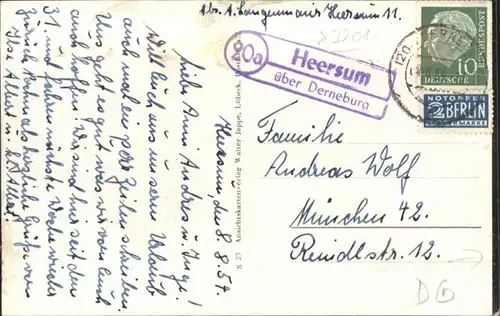 Abs. A. Langermair Heersum 11.
3201
20a
Heersum
über Derneburg
(20
10
DEUTSCHE
BUNDESPOST
NOTOPFER
2 BERLIN
STEUERMARKE
Familie
Andreas Wolf
München 42.
Reindlstr. 12.
S 23 Ansichtskartenverlag Walter Jappe, Lübeck,
Heersum, den 8. 8. 54.
Liebe Anni Andres u. Inge!
Will Euch aus unserm Urlaub
auch mal ein paar Zeilen schreiben.
Uns geht es gut was wir von Euch
auch hoffen. Wir sind hier seit dem
31. und fahren nächste Woche wieder
zurück. Recht herzliche Grüße von
Ilse Albert